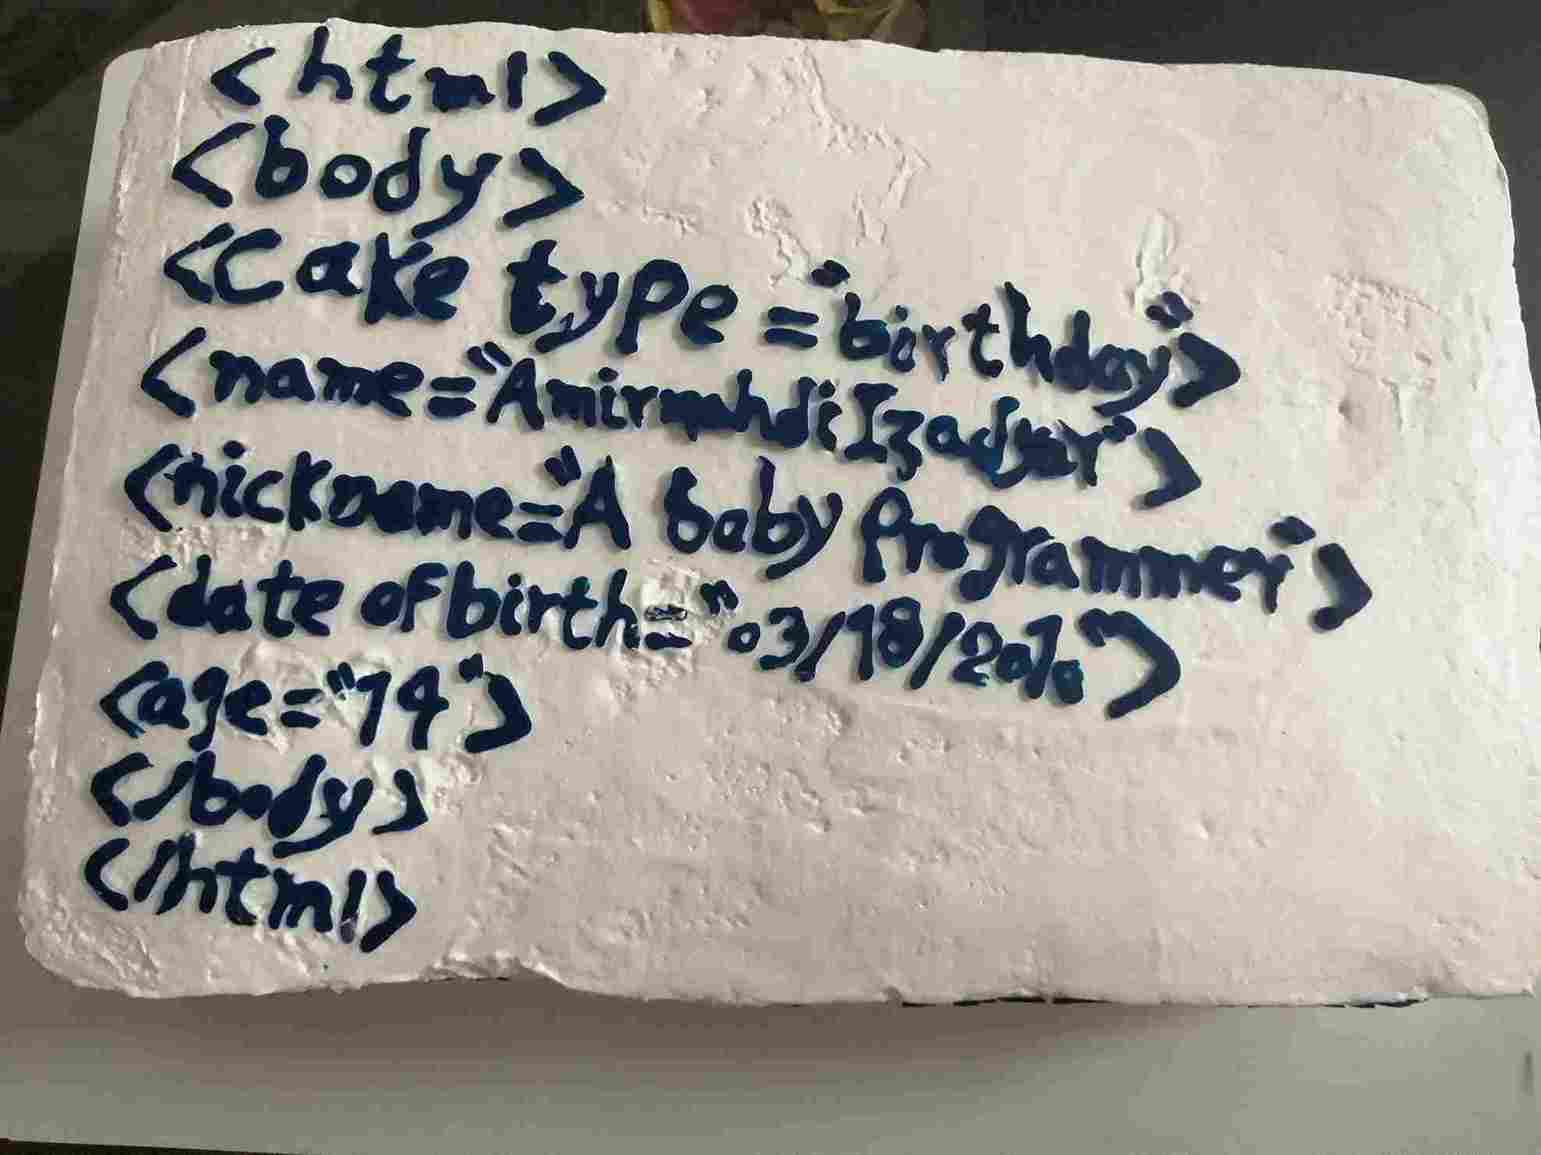 <html>
<body>
<Cake type="birthday">
<name="Amirmahdi Izadyar">
<nickname="A baby Programmer">
<date of birth="03/18/2010">
<age="14">
</body>
</html>